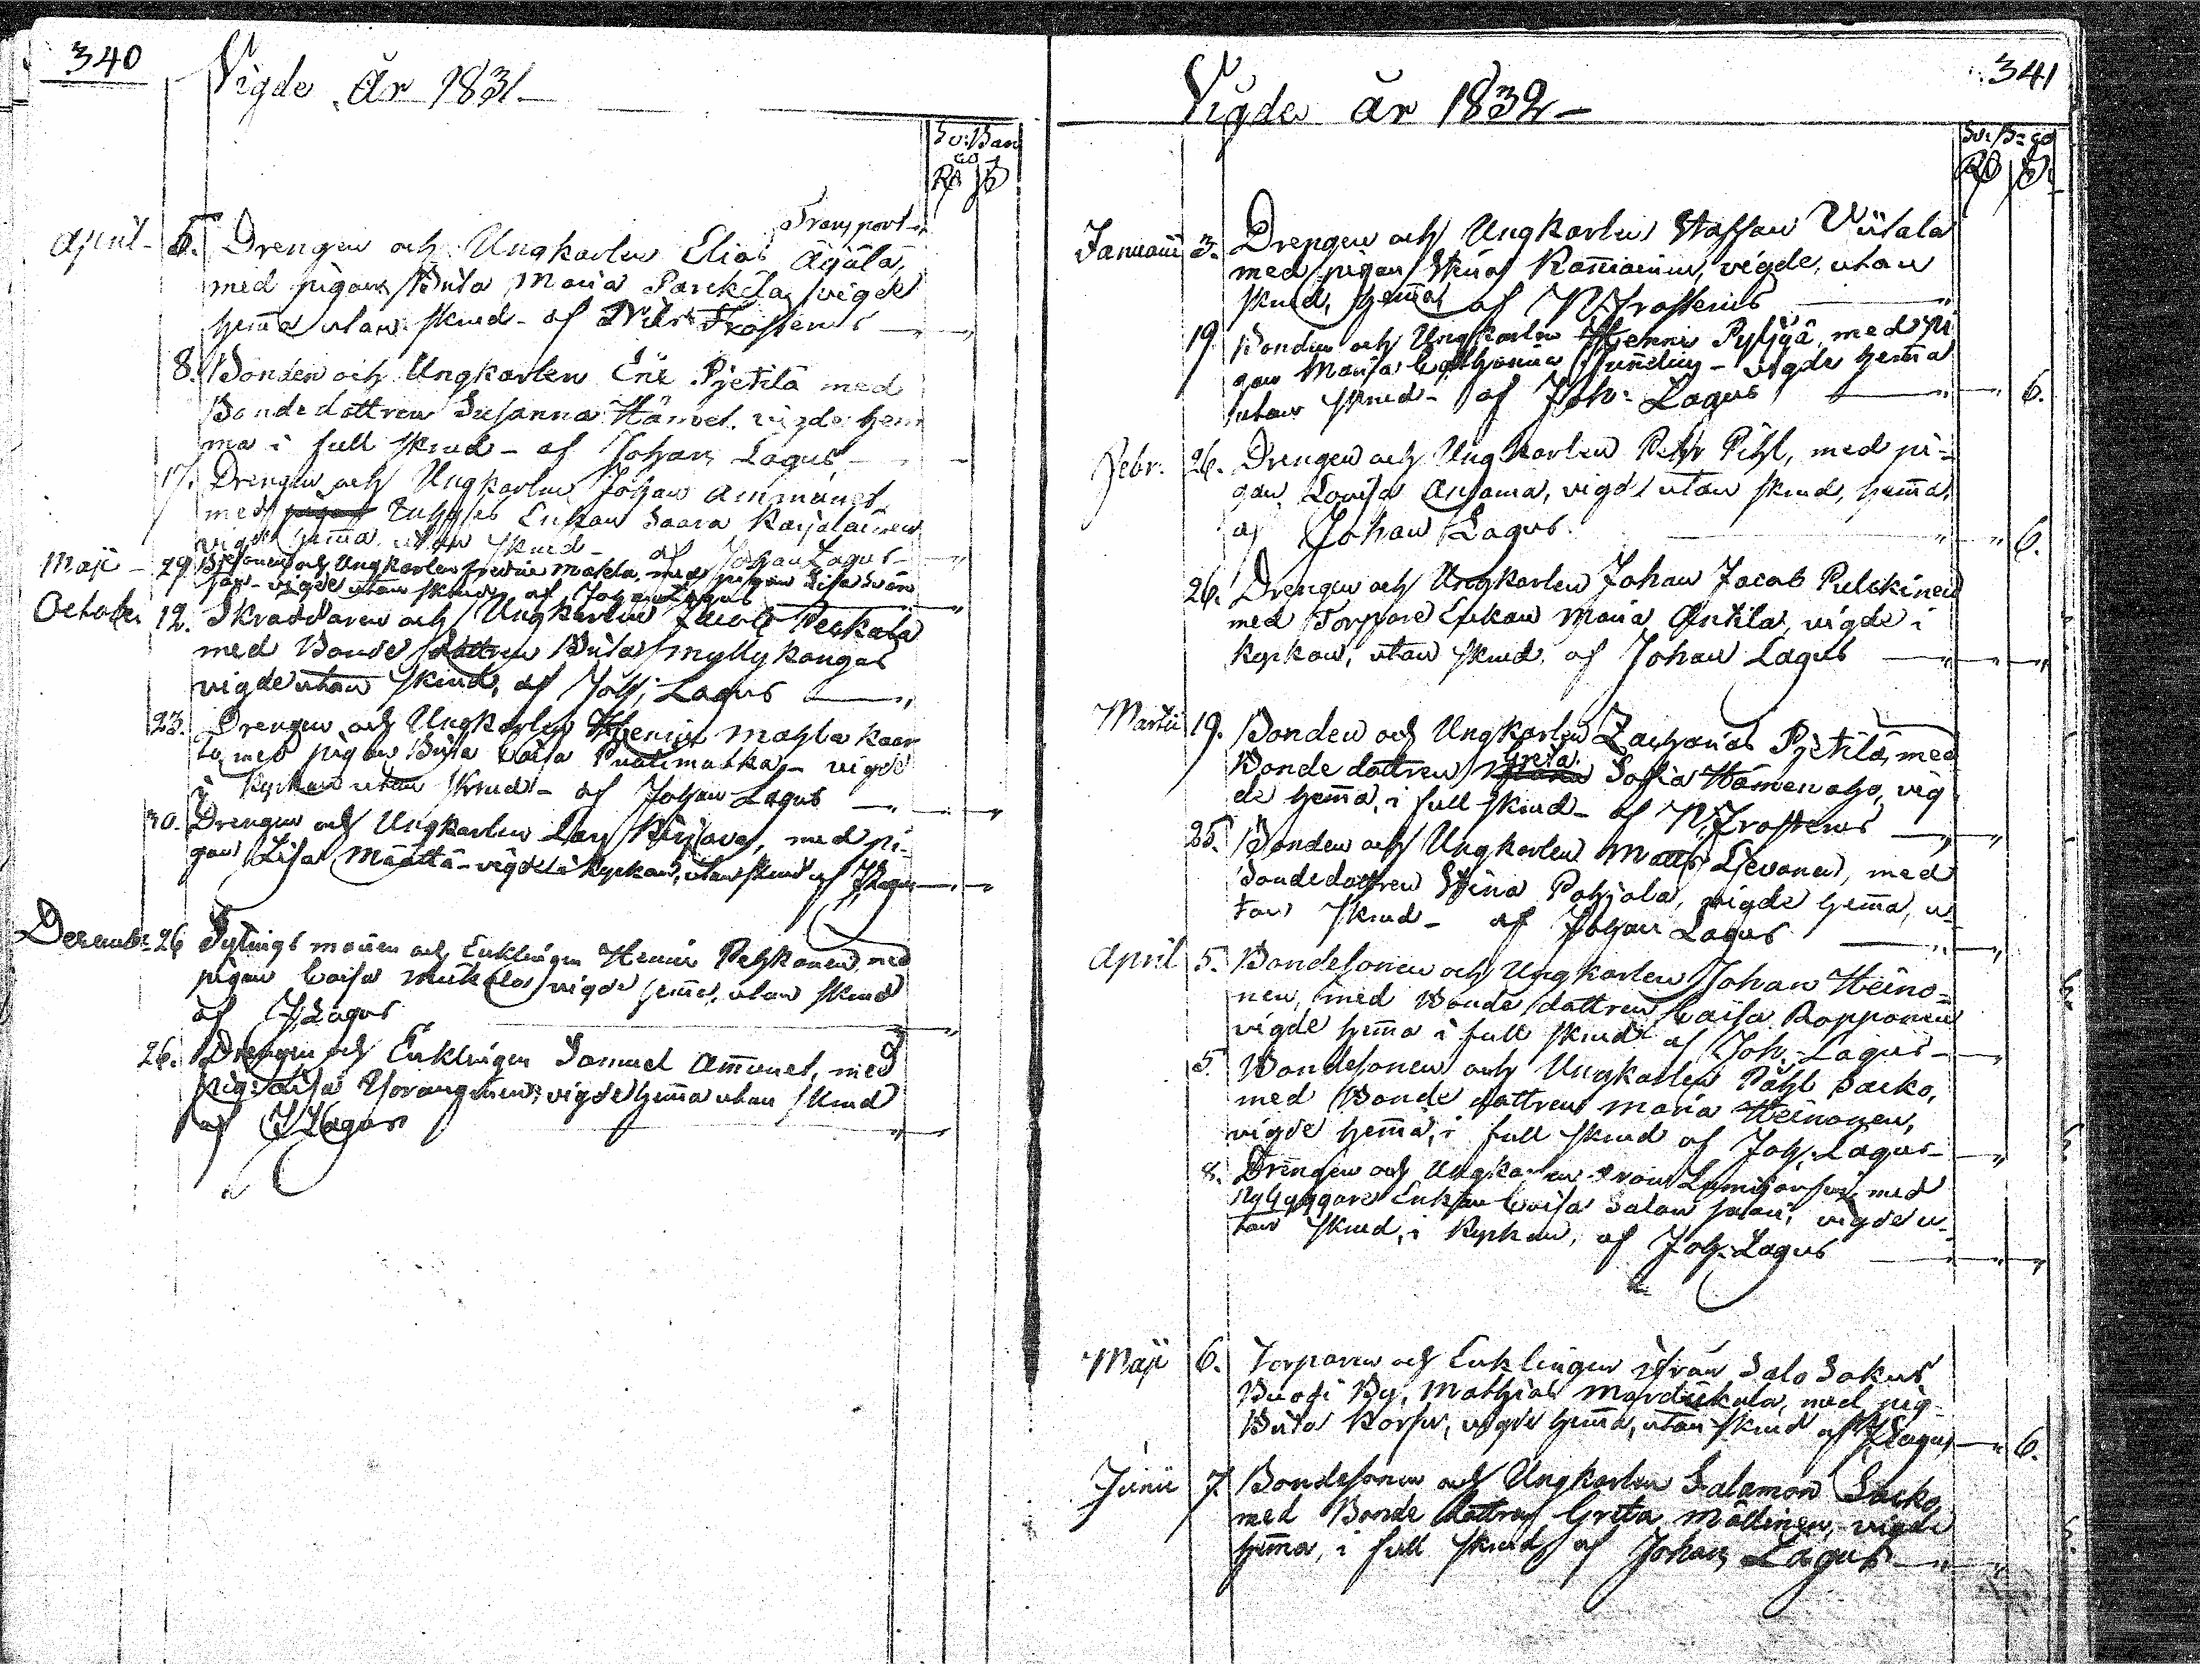 340
Vigde År 1831
Sv: Ban
co
Rd ß
Transport
April 5. Drengen och Ungkarlen Elias Äijälä,
med pigan Brita Maria Parckila vigde
hemma utan skrud af Nils Frosterus
8. Bonden och Ungkarlen Eric Pjetilä med
Bonde dottren Susanna Hänvet vigde hem
ma i full skrud - af Johan Lagus
17. Drengen och Ungkarlen Johan Ammunet
med Enkan Saara Karjalainen
vigde hemma utan skrud - af Johan Lagus
Maji 29 Bdesonen och Ungkarlen Fredric Makla med pigan Lisa Svan
vigde utan skrud af Johan Lagus
October 12. Skräddaren och Ungkarlen Jacob Peckala
med Bonde dottren Brita Myllykangas
vigde utan skrud, af Joh: Lagus
23. Drengen och Ungkarlen Henric Mahlakaar
to, med pigan Brita Caisa Puolimatka - vigde
i kyrkan utan skrud - af Johan Lagus
30. Drengen och Ungkarlen Lars Kirjava, med pi-
gan Lisa Määttä - vigde i kyrkan, utan skrud af J Lagus
December 26 Sytnings mannen och Enklingen Henric Pelkonen med
pigan Caisa Mickela vigde hemma, utan skrud
af J Lagus
26. Drengen och Enklingen Samuel Ammunet, med
pig: Lisa vigde hemma utan skrud
af J Lagus
341
Vigde år 1832
Sv: B: co
Rd ß
Januarii 3. Drengen och Ungkarlen Staffan Viitala
med pigan Stina Kanniainen, vigde, utan
skrud, hemma, af N Frosterus
19 Bonden och Ungkarlen Henric Pyljyä, med pi
gan Maria Catharina Sundlin - vigde hemma
utan skrud - af Joh: Lagus 6.
Febr. 26. Drengen och Ungkarlen Pehr Pihl, med pi-
gan Lovisa Ansama, vigde utan skrud, hemma,
af Johan Lagus 6.
26. Drengen och Ungkarlen Johan Jacob Pulckinen
med Torpare Enkan Maria Antila, vigde i
kyrkan, utan skrud, af Johan Lagus
Martii 19. Bonden och Ungkarlen Zacharias Pjetilä, med
Greta
Bonde dottren Maria Sofia Hämenaho, vig
de hemma, i full skrud - af N Frosterus
25. Bonden och Ungkarlen Matts Ljevonen, med
Bondedottren Stina Pohjola, vigde hemma, u-
tan skrud - af Johan Lagus
April 5. Bondesonen och Ungkarlen Johan Heino-
nen, med Bonde dottren Caisa Ropponen
vigde hemma i full skrud af Joh: Lagus
5. Bondesonen och Ungkarlen Påhl Sacko,
med Bonde dottren Maria Heinonen,
vigde hemma, i full skrud af Joh: Lagus
8. Drengen och Ungkarlen från Lumijocki, med
Nybyggare Enkan Caisa vigde u-
tan skrud, i kyrkan, af Joh: Lagus
Maji 6. Torparen och Enklingen ifrån Salo Sokns
By, Mathias Mardickala, med pig
Brita Korpi, vigde hemma, utan skrud af J Lagus 6.
Junii 7. Bondesonen och Ungkarlen Salamon Sacko,
med Bonde dottren Greta Mällinen, vigde
hemma, i full skrud, af Johan Lagus